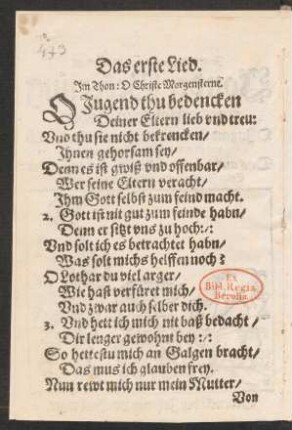 473
Das erste Lied.
Im Thon: O Christe Morgensterne.
O Jugend thu bedencken
Deiner Eltern lieb vnd treu:
Vnd thu sie nicht bekrencken/
Ihnen gehorsam sey/
Denn es ist gwiß vnd offenbar/
Wer seine Eltern veracht/
Ihm Gott selbst zum feind macht.
2. Gott ist nit gut zum feinde habn/
Denn er sitzt vns zu hoch:/:
Vnd solt ich es betrachtet habn/
Was solt michs helffen noch?
O Lothar du viel arger/
Wie hast verfüret mich/
Vnd zwar auch selber dich.
3. Vnd hett ich mich nit baß bedacht/
Dir lenger gewohnt bey:/:
So hettestu mich an Galgen bracht/
Das mus ich glauben frey.
Nun rewt mich nur mein Mutter/
Von
Ex
Bibl. Regia
Berolin.